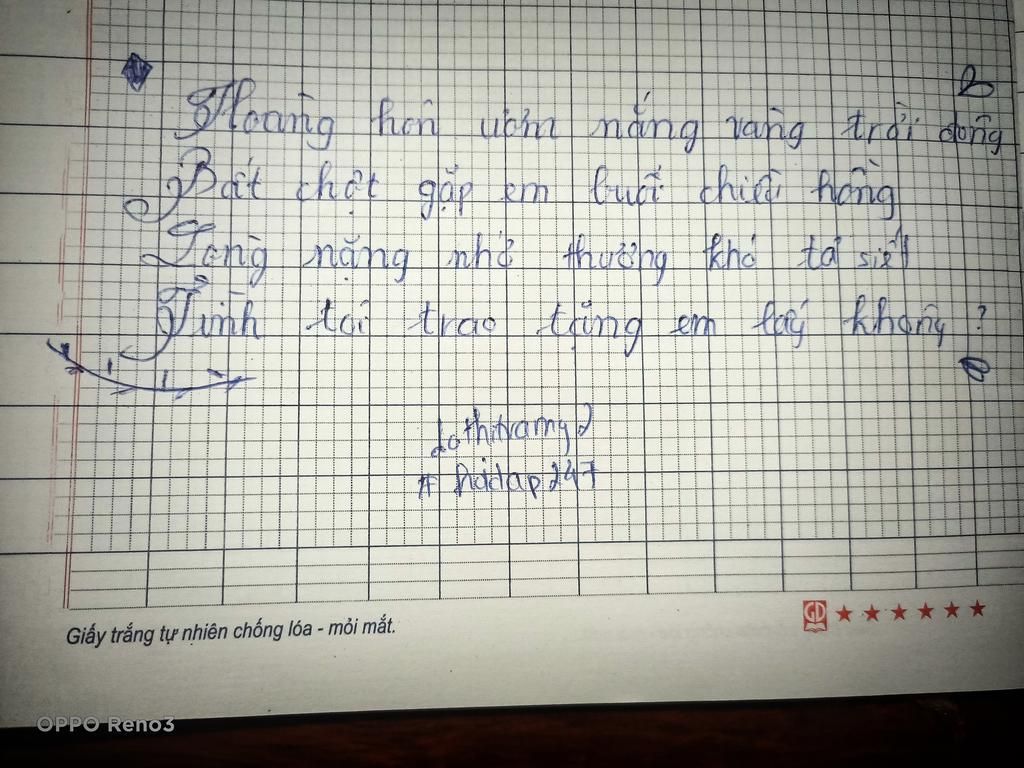 Hoàng hôn ươm nắng vàng trời đông
Bất chợt gặp em buổi chiều hồng
Tong nặng nhớ thương khó tả siết
Tình tôi trao tặng em lấy không ?
dothitramy2
# hoidap247
Giấy trắng tự nhiên chống lóa - mỏi mắt.
GD
OPPO Reno3